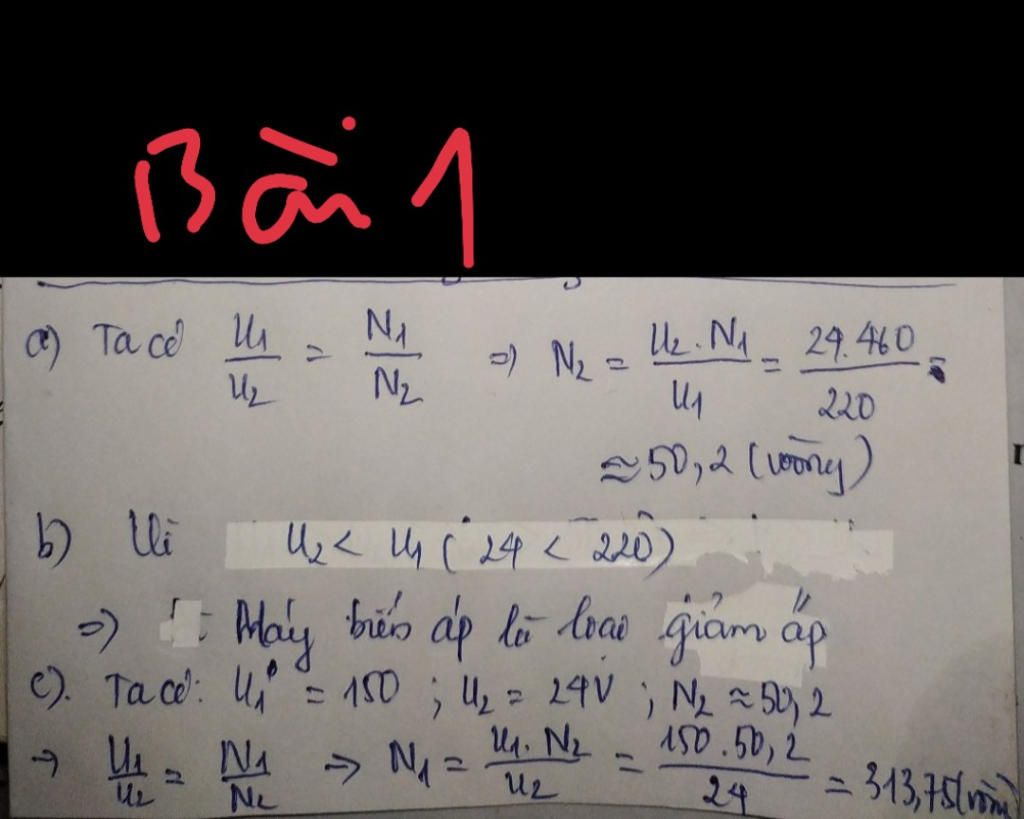 Bài 1
a) Ta có U1/U2 = N1/N2 => N2 = U2.N1/U1 = 24.460/220 =
≈ 50,2 (vòng)
b) Vì U2 < U1 ( 24 < 220 )
=> Máy biến áp là loại giảm áp
c). Ta có: U1 = 150 ; U2 = 24V ; N2 ≈ 50,2
→ U1/U2 = N1/N2 => N1 = U1.N2/U2 = 150.50,2/24 = 313,75 (vòng)